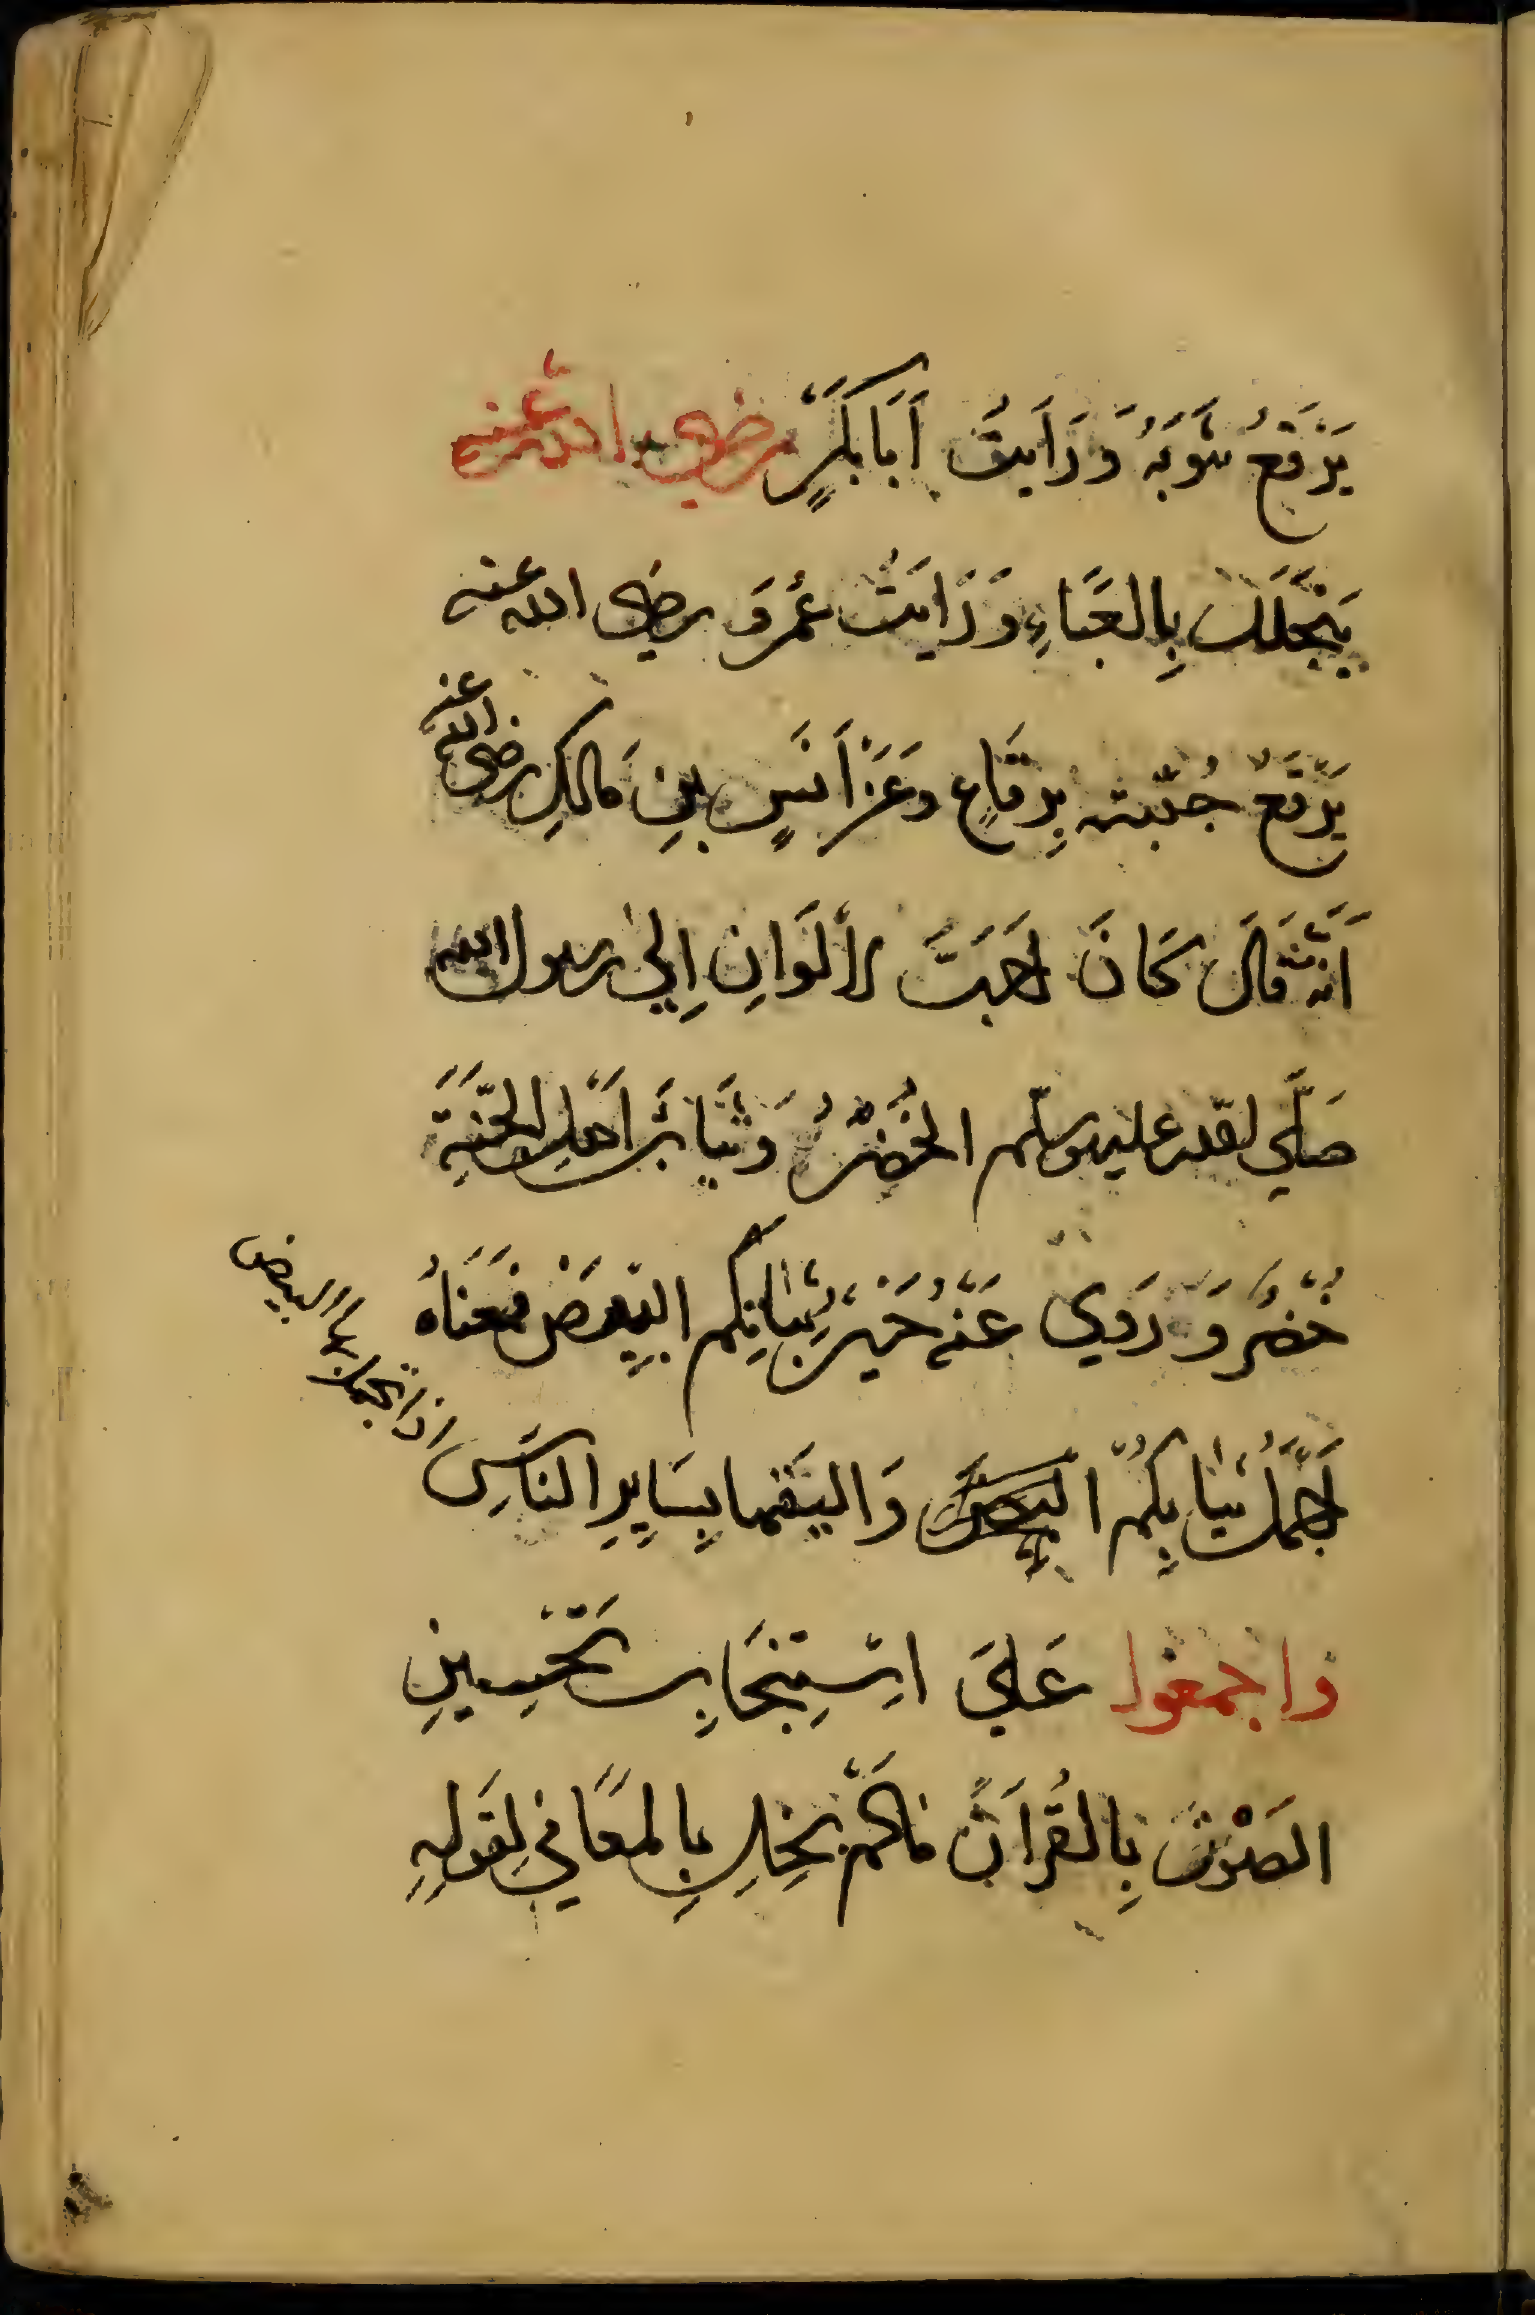 يَرْقَعُ ثَوبَهُ وَرَاَيتُ اَبَابَكرٍ رضي الله عنه
يَتَجَلَّلُ بِالعَبَاءِ وَرَايتُ عُمَرَ رضي الله عنه
يَرْقَعُ جُبّته بِرِقَاعٍ وعَن اَنَسٍ بنِ مَالكٍ رضي الله عنه
اَنّه قَالَ كَانَ اَحَبَّ الألوَانِ اِلي رسول الله
صَلَّي الله عليه وسلّم الخُضْرُ وَثيَابُ اَهلِ الجَنّةِ
خُضْرٌ وَ رَوي عَنْهُ خَيْرُ ثِيابِكُم البِيضُ فمَعنَاهُ
اَجمَلُ ثيَابِكُم وَاليَقها بِسَايِرِ الناسِ
اذا تجملتم بها البيض
واجمعوا عَليَ اسْتِحْبَابِ تَحْسِينِ
الصَوْتَ بِالقُرآنِ مَالَمْ يُخِل بِالمعَاني لِقَولِهِ